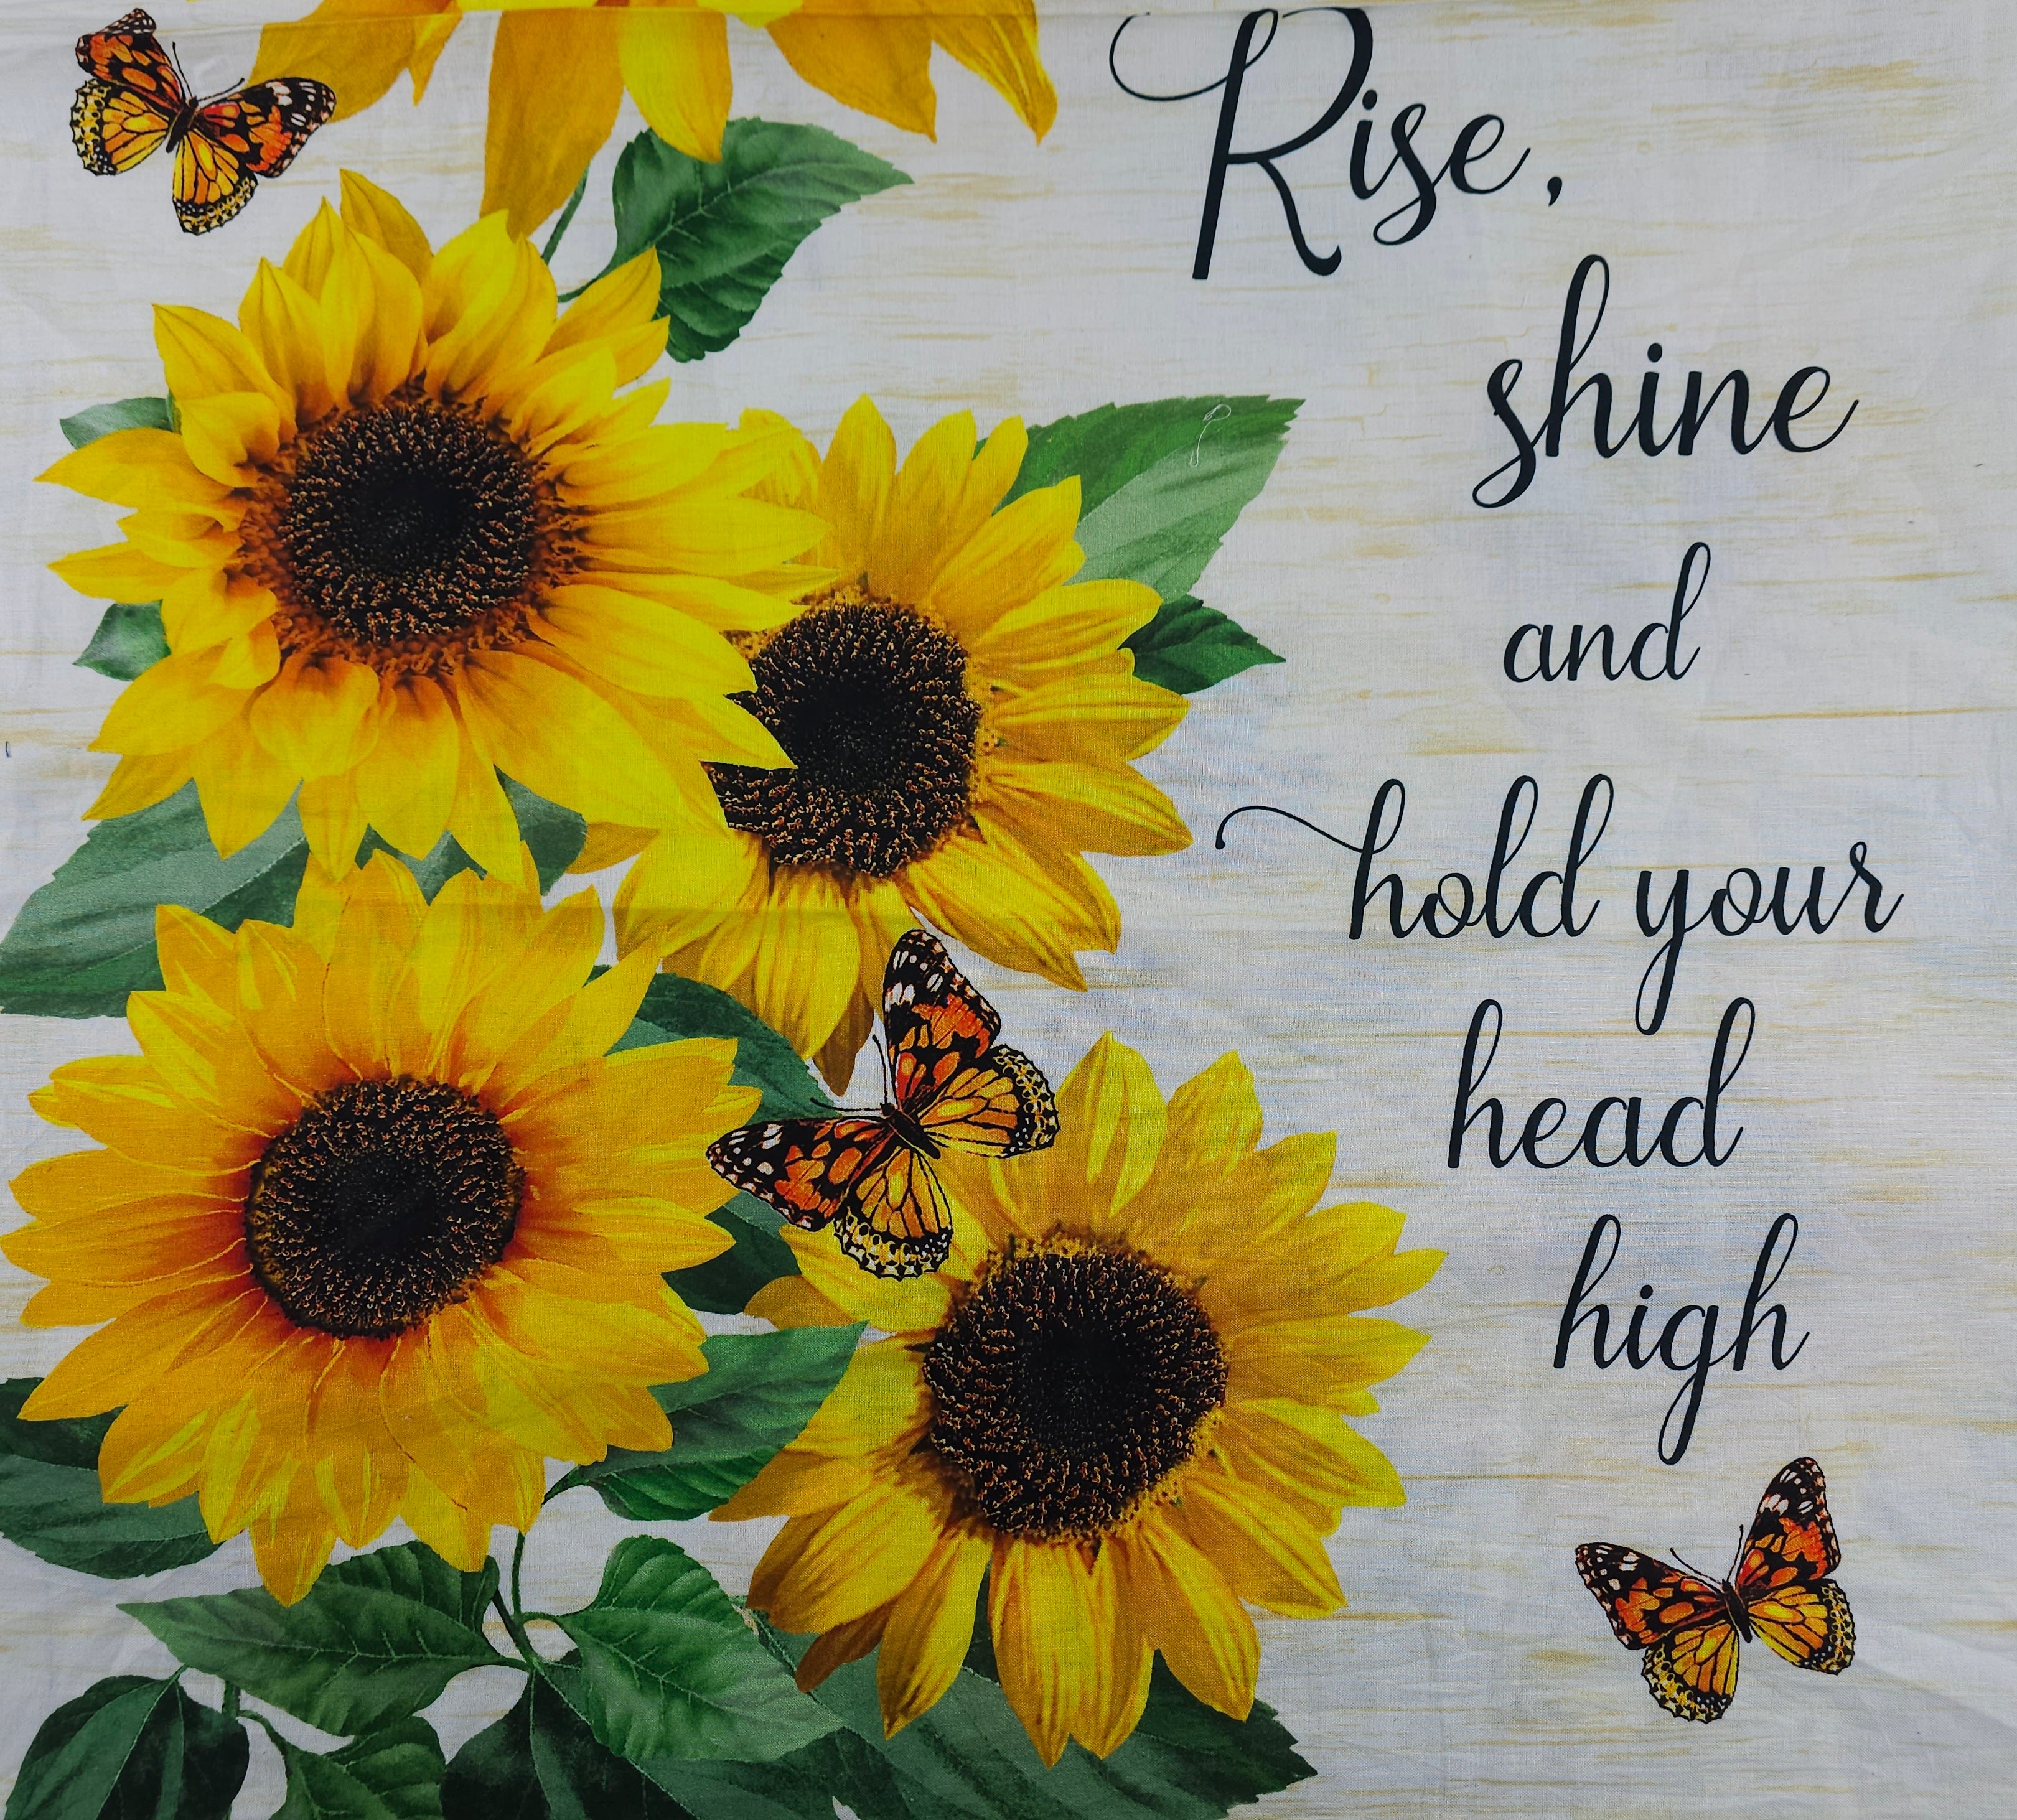 Rise,
shine
and
hold your
head
high